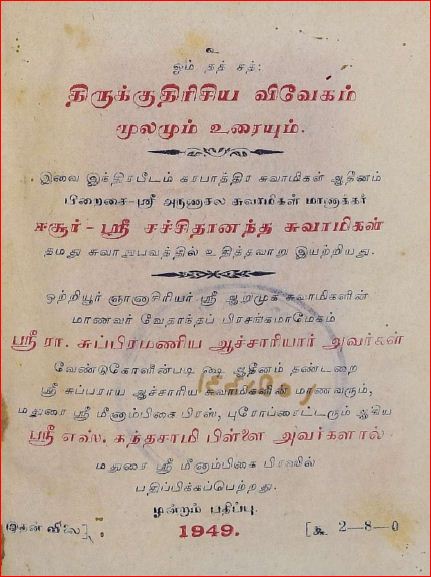 உ
ஓம் தத் சத்:
திருக்குதிரிசிய விவேகம்
மூலமும் உரையும்.
இவை இந்திரபீடம் கரபாத்திர சுவாமிகள் ஆதீனம்
பிறைசை-ஸ்ரீ அருணாசல சுவாமிகள் மாணாக்கர்
ஈசூர்-ஸ்ரீ சச்சிதானந்த சுவாமிகள்
தமது சுவாநுபவத்தில் உதித்தவாறு இயற்றியது.
ஒற்றியூர் ஞானாசிரியர் ஸ்ரீ ஆறுமுக சுவாமிகளின்
மாணவர் வேதாந்தப் பிரசங்கமாமேகம்
ஸ்ரீ ரா. சுப்பிரமணிய ஆச்சாரியார் அவர்கள்
வேண்டுகோளின்படி ஷை ஆதீனம் தண்டரை
ஸ்ரீ சுப்பராய ஆச்சாரிய சுவாமிகளின் மாணவரும்,
மதுரை ஸ்ரீ மீனாம்பிகை பிரஸ், புரோப்ரைட்டரும் ஆகிய
ஸ்ரீ எஸ். கந்தசாமி பிள்ளை அவர்களால்
மதுரை ஸ்ரீ மீனாம்பிகை பிரஸில்
பதிப்பிக்கப்பெற்றது.
மூன்றாம் பதிப்பு.
இதன் விலை] 1949. [ரூ. 2—8—0